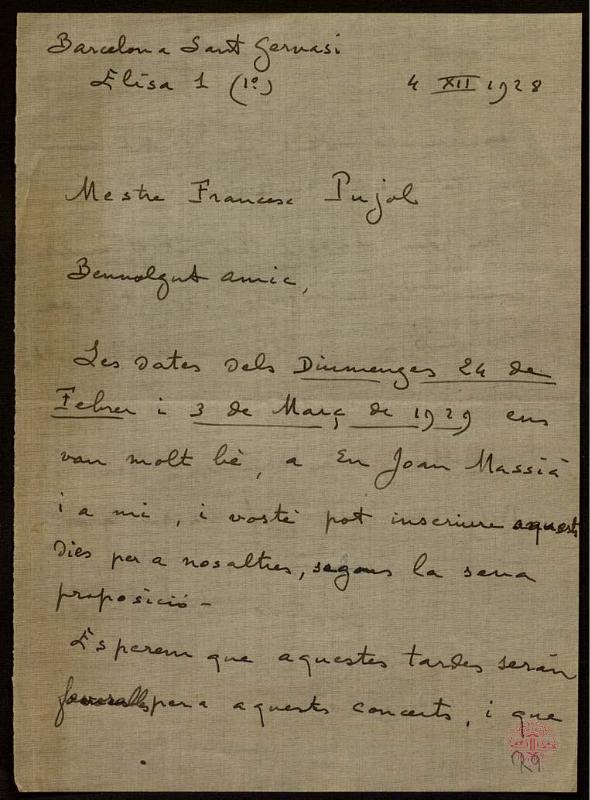 Barcelona Sant Gervasi
Elisa 1 (1º)
4 XII 1928
Mestre Francesc Pujol
Benvolgut amic,
Les dates dels Diumenges 24 de
Febrer i 3 de Març de 1929 ens
van molt bè, a En Joan Massiá
i a mi, i vostè pot inscriure aquests
dies per a nosaltres, segons la seva
proposició -
Esperem que aquestes tardes serán
per a aquests concerts, i que